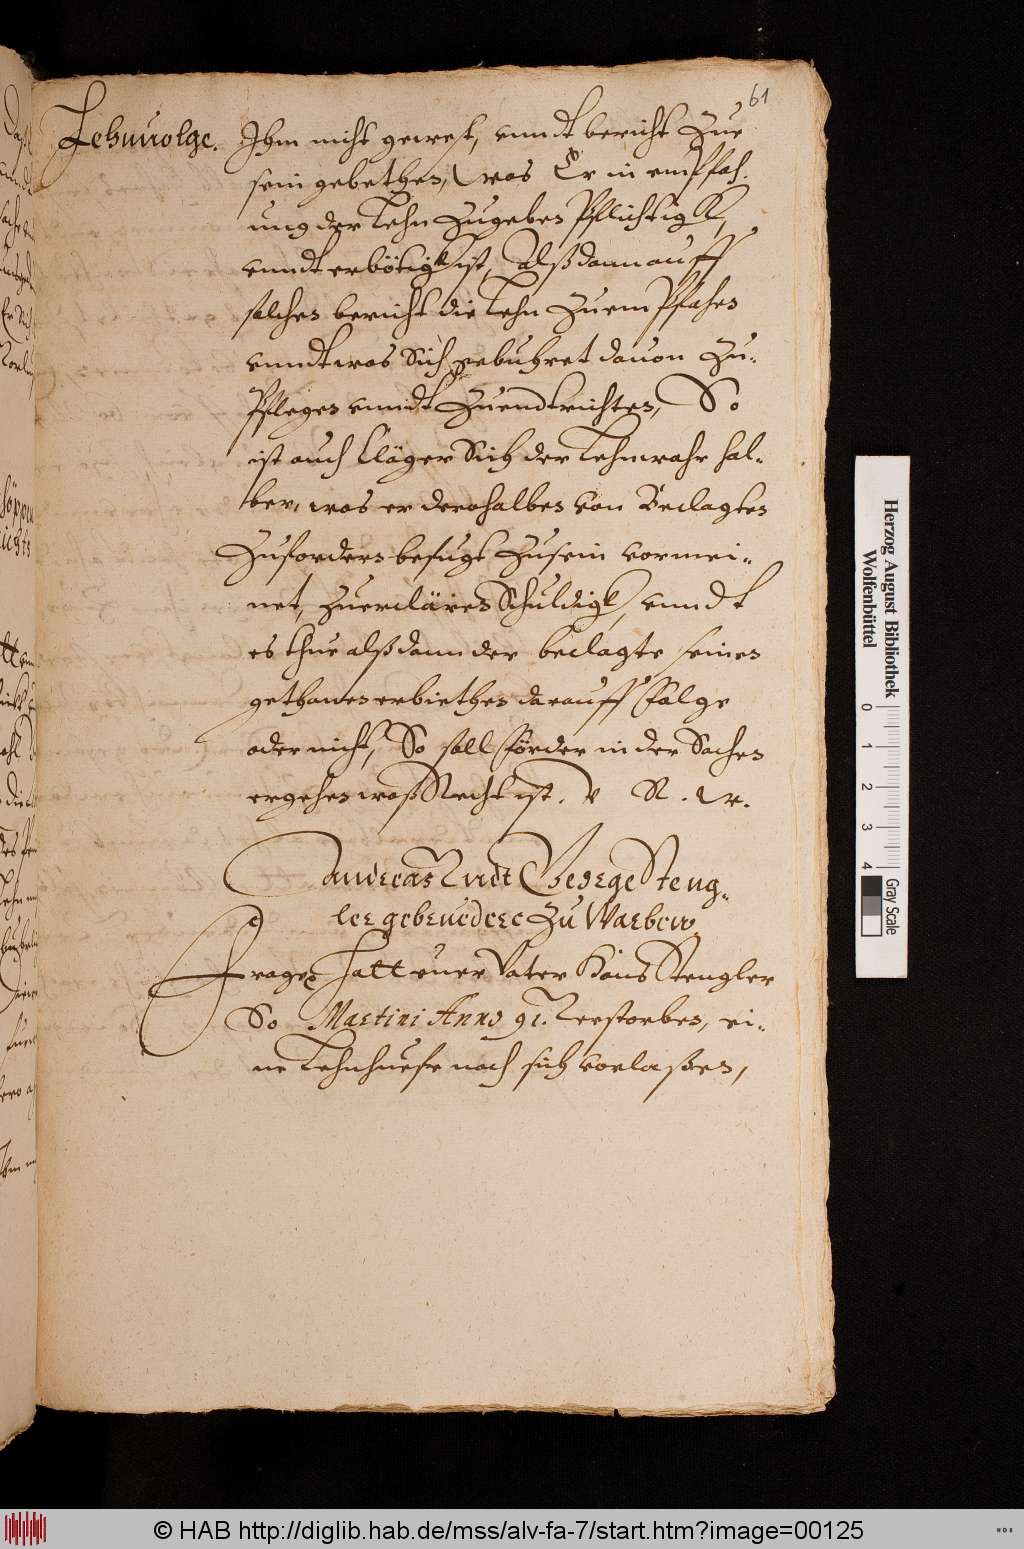 61
Lehnuolge.
Ihm nicht gewest, vnndt bericht Zue
sein gebethen, was Er in empfah-
ung der Lehn Zugeben Pflichtigk,
vnndt erbötigk ist, Alß dann auff
solchen bericht die Lehn Zuempfahen
vnndt was Sich gebuhret dauon Zu-
Pflegen vnndt Zuendtrichten, So
ist auch Cläger Sich der Lehnwahr hal-
ber, was er derohalben von Beclagten
Zufordern befugt Zusein vormei-
net, Zuerclären Schuldigk, vnndt
es thue alß dann der beclagte seinem
gethanen erbiethen darauff folge
oder nicht, So soll förder in der Sachen
ergehen waß Recht ist. V. R. W.
Andreas Vndt George Steng-
ler gebruedere Zu Warbew.
Fragen Hatt euer Vater Hans Stengler
So Martini Anno 91. Verstorben, ei-
ne Lehnhuefe nach sich vorlaßen,
Herzog August Bibliothek
Wolfenbüttel
0 1 2 3 4
Gray Scale
© HAB http://diglib.hab.de/mss/alv-fa-7/start.htm?image=00125